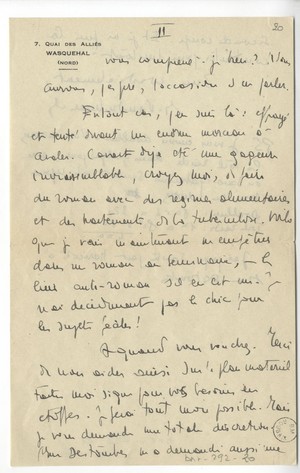 II
20
7. QUAI DES ALLIÉS
WASQUEHAL
(NORD)
vous comprenez-je bien? Nous
aurons, j'espère, l'occasion d'en parler.
En tout cas, j'en suis là: effrayé
et tenté devant un énorme morceau à
avaler. C'avait déjà été une gageure
invraisemblable, croyez moi, de faire
du roman avec des régimes alimentaires
et des traitements de la tuberculose. Voilà
que je vais maintenant m'empêtrer
dans un roman au séminaire,
anti-roman s'il en est un. Je
n'ai décidément pas le chic pour
les sujets faciles!
A quand vous voyez. Merci
de nous aider aussi sur le plan matériel
faites moi signe pour vos besoins en
étoffes. Je ferai tout mon possible. Mais
je vous demande une totale discrétion
Desombes m'a demandé aussi une